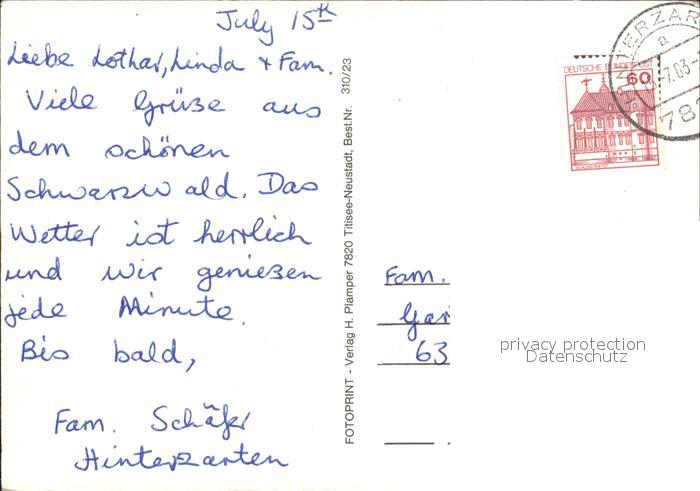 July 15th
Liebe Lothar, Linda + Fam.
Viele Grüße aus
dem schönen
Schwarzwald. Das
Wetter ist herrlich
und wir genießen
jede Minute.
Bis bald,
Fam. Schäfer
Hinterzarten
FOTOPRINT - Verlag H. Plamper 7820 Titisee-Neustadt, Best.Nr. 310/23
DEUTSCHE BUNDESPOST
60
TERZAR
a
-7.83-
78
Fam.
Gar
63
privacy protection
Datenschutz